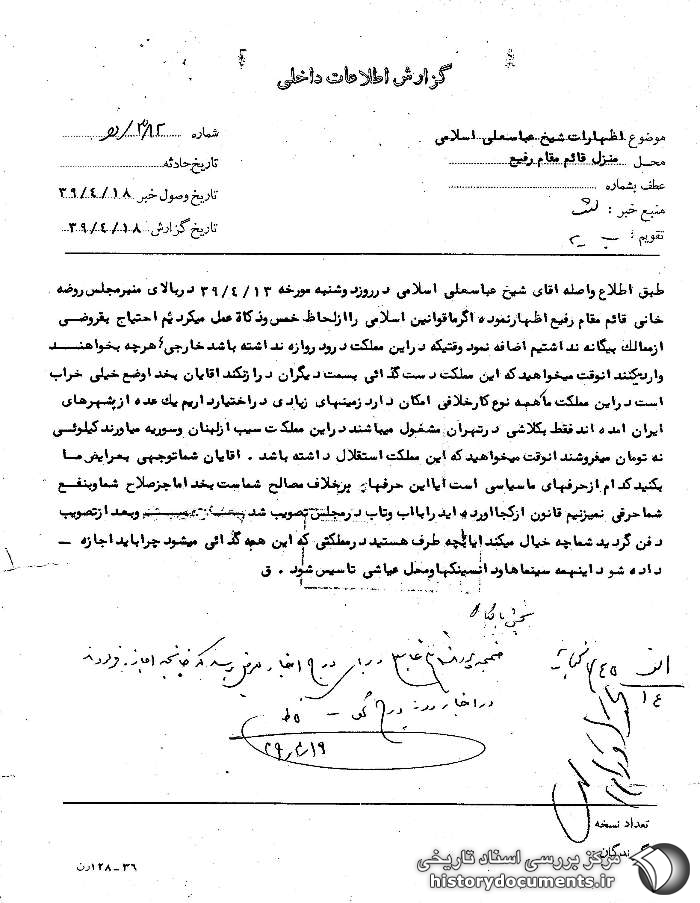 گزارش اطلاعات داخلی
موضوع اظهارات شیخ عباسعلی اسلامی
شماره
محل منزل قائم مقام رفیع
تاریخ حادثه
عطف بشماره
تاریخ وصول خبر ۳۹/۴/۱۸
منبع خبر :
تاریخ گزارش ۳۹/۴/۱۸
تقویم : ب ـ ۲
طبق اطلاع واصله آقای شیخ عباسعلی اسلامی در روز دوشنبه مورخه ۳۹/۴/۱۳ در بالای منبر مجلس روضه
خانی قائم مقام رفیع اظهار نموده اگر ما قوانین اسلامی را از لحاظ خمس و ذکاة عمل میکردیم احتیاج بقروضی
از ممالك بیگانه نداشتیم اضافه نمود وقتیکه در این مملکت در و دروازه نداشته باشد خارجی هرچه بخواهند
وارد کنند آنوقت میخواهید که این مملکت دست گدائی بسمت دیگران دراز نکند آقایان بخدا وضع خیلی خراب
است در این مملکت ما همه نوع کار خلافی امکان دارد زمینهای زیادی در اختیار داریم یك عده از شهرهای
ایران آمده اند فقط بکلاشی در تهران مشغول میباشند در این مملکت سیب از لبنان و سوریه میاورند کیلوئی
نه تومان میفروشند آنوقت میخواهید که این مملکت استقلال داشته باشد . آقایان شما توجهی بعرایض ما
بکنید کدام از حرفهای ما سیاسی است آیا این حرفهای برخلاف مصالح شماست بخدا ما جز صلاح شما و بنفع
شما حرفی نمیزنیم قانون از کجا آورده اید را با آب و تاب در مجلس تصویب شد و بعد از تصویب
دفن گردید شما چه خیال میکنید آیا بچه طرف هستید در مملکتی که این همه گدائی میشود چرا باید اجازه ـ
داده شود اینهمه سینماها و دانسینگها و محل عیاشی تاسیس شود . ق
در اخبار روز درج
۳۹/۴/۱۹
تعداد نسخه
گیرندگان
۳۶ـ۱۲۸ رن
مرکز بررسی اسناد تاریخی
historydocuments.ir